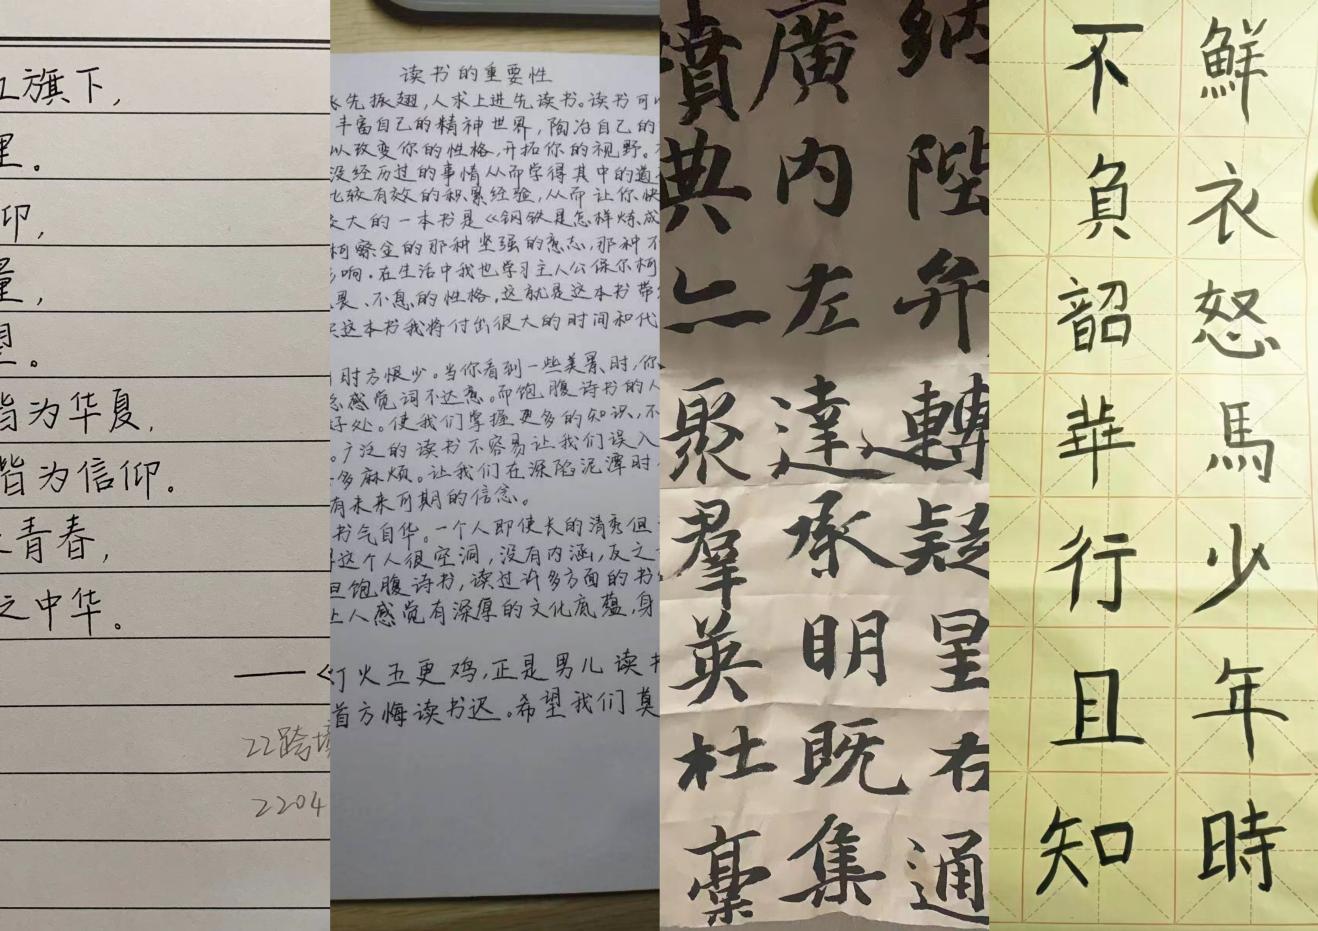 旗下，
里。
仰，
量，
望。
皆为华夏，
皆为信仰。
青春，
之中华。
——《
22跨境
2204
读书的重要性
先振翅，人求上进先读书。读书可以
丰富自己的精神世界，陶冶自己的
以改变你的性格，开拓你的视野。
没经历过的事情从而学得其中的道
比较有效的积累经验，从而让你快
大的一本书是《钢铁是怎样炼成
柯察金的那种坚强的意志，那种不
响。在生活中我也学习主人公保尔柯
畏、不息的性格，这就是这本书带
这本书我将付出很大的时间和代
时方恨少。当你看到一些美景时，你
感觉词不达意。而饱腹诗书的人
好处。使我们掌握更多的知识，不
广泛的读书不容易让我们误入
多麻烦。让我们在深陷泥潭时
有未来可期的信念。
书气自华。一个人即使长的清秀但
这个人很空洞，没有内涵，反之
但饱腹诗书，读过许多方面的书
让人感觉有深厚的文化底蕴，身
灯火五更鸡，正是男儿读书
首方悔读书迟。希望我们莫
纳陛弁轉疑星右通
廣内左達承明既集
墳典亦聚羣英杜稾
鮮衣怒馬少年時
不負韶華行且知